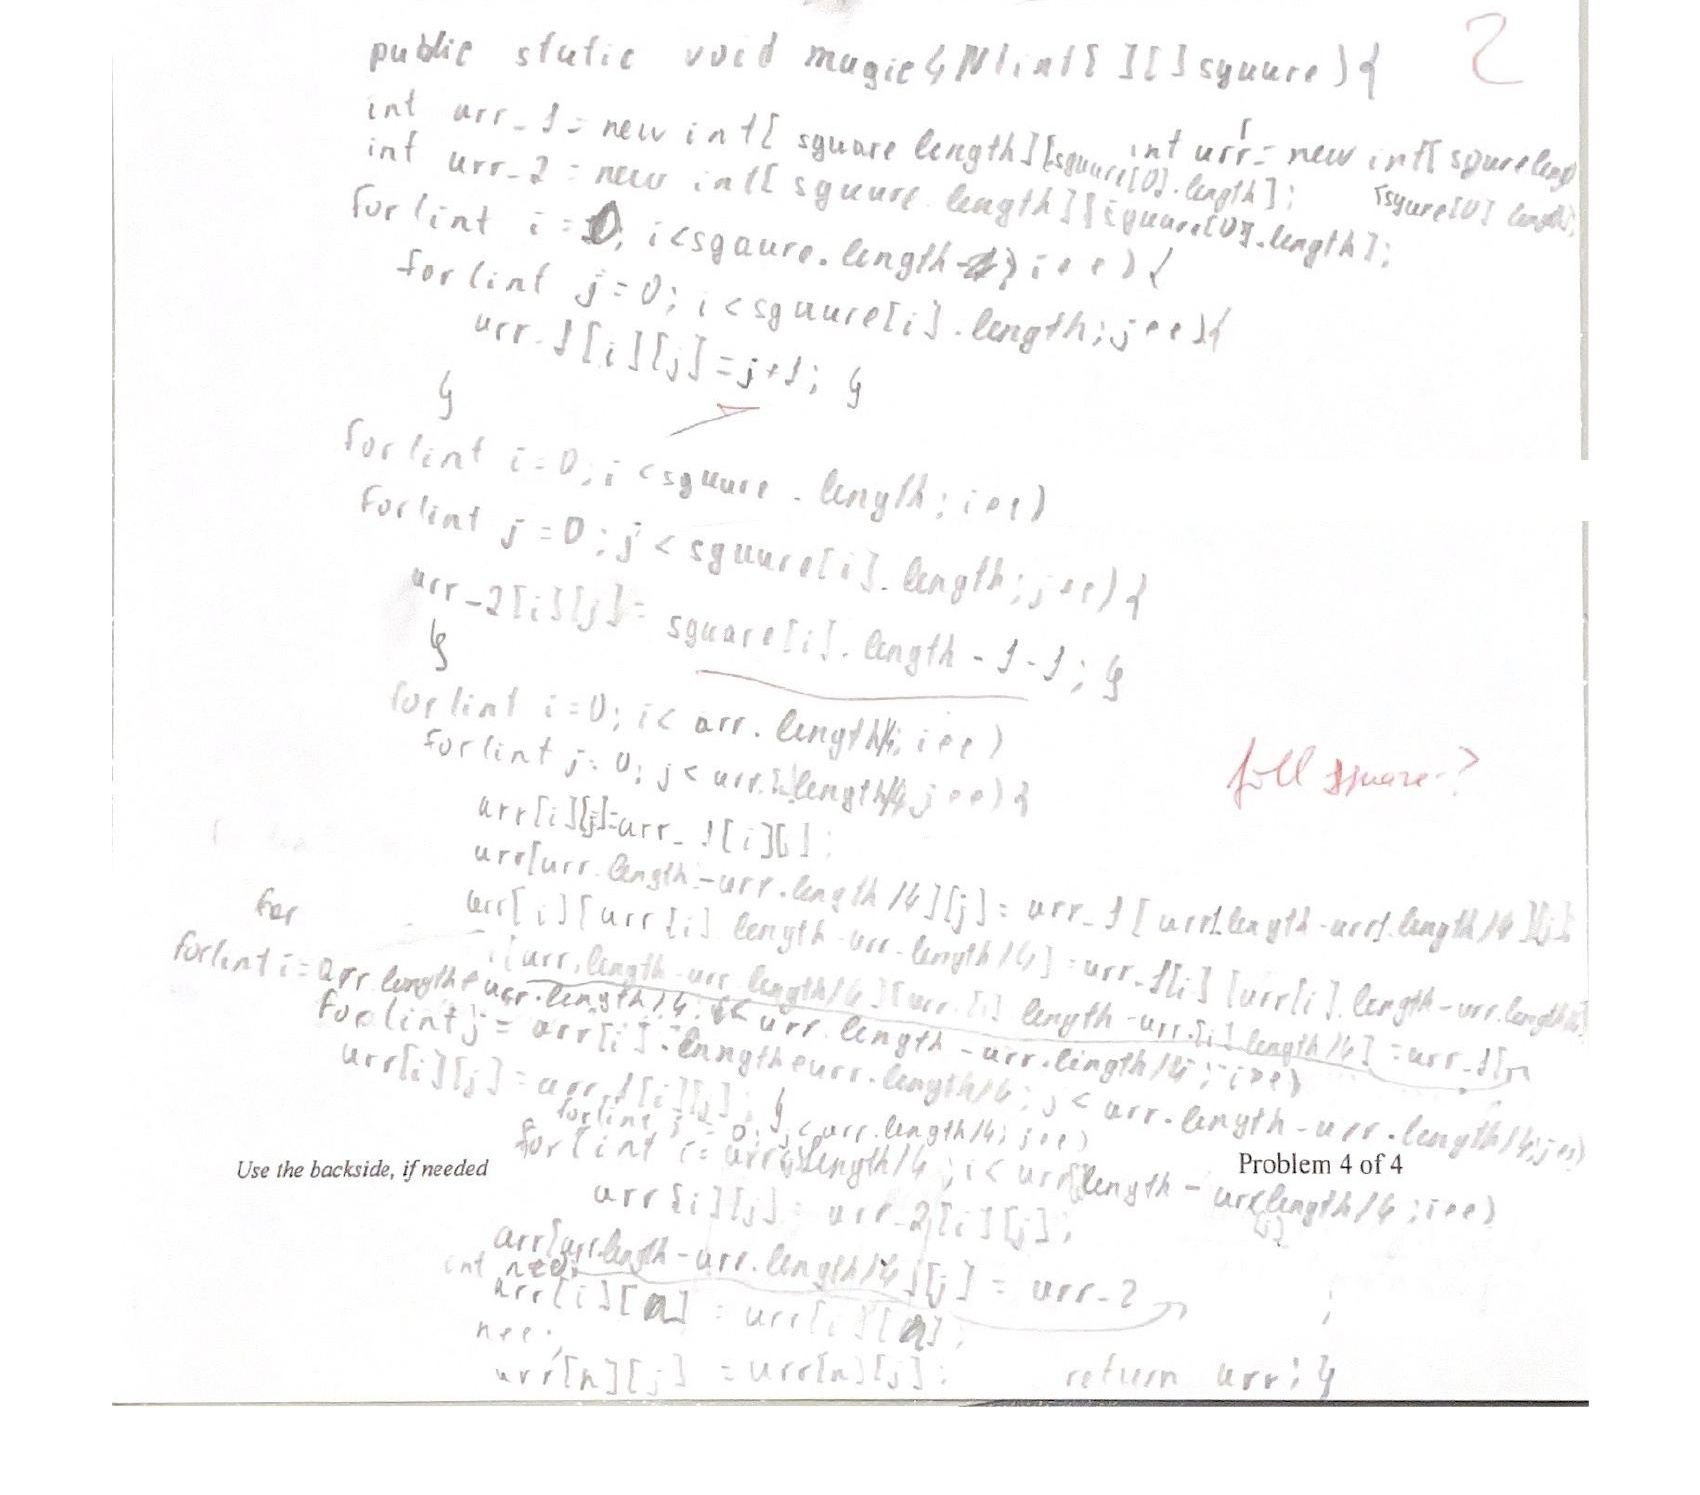 2
public static void magic4N(int[ ][ ] square){
int arr_1 = new int[ square length][square[0].length]; int arr = new int[ square leng
int arr_2 = new int[ square. length][square[0].length]; [square[0] length];
for(int i = 0; i<sqaure.length ; i++){
for(int j=0; i<square[i].length; j++){
arr_1[i][j]=j+1; }
}
for(int i=0; i<square . length; i++)
for(int j=0; j< square[i]. length; j++){
arr_2[i][j]= square[i]. length - 1-1; }
}
for(int i=0; i< arr. length/4; i++)
full square-?
for(int j=0; j< arr. length/4 j++){
arr[i][j]=arr_1[i][j];
arr[arr.length-arr.length/4][j]= arr_1[ arr1.length-arr1.length/4][j];
for
arr[i][arr[i].length-arr.length/4] = arr_1[i] [arr[i].length-arr.length
[arr.length-arr.length/4][arr.[i] length-arr.[i] length/4] = arr_1[
for(int i=arr.length+arr.length/4; i< arr.length-arr.length/4; i++)
for(int j= arr[i].length+arr.length/4; j< arr.length-arr.length/4;j++)
arr[i][j]=arr_1[i][j]; }
for(int j=0; j<arr.length/4; j++)
for(int i= length/4; i< length- length/4; i++)
Use the backside, if needed
Problem 4 of 4
arr[i][j]= arr_2[i][j];
arr[arr.length-arr.length/4][j] = arr_2 ;
int n=0;
arr[i][n] = arr[i][n];
n++;
arr[n][j] =arr[n][j]; return arr; }